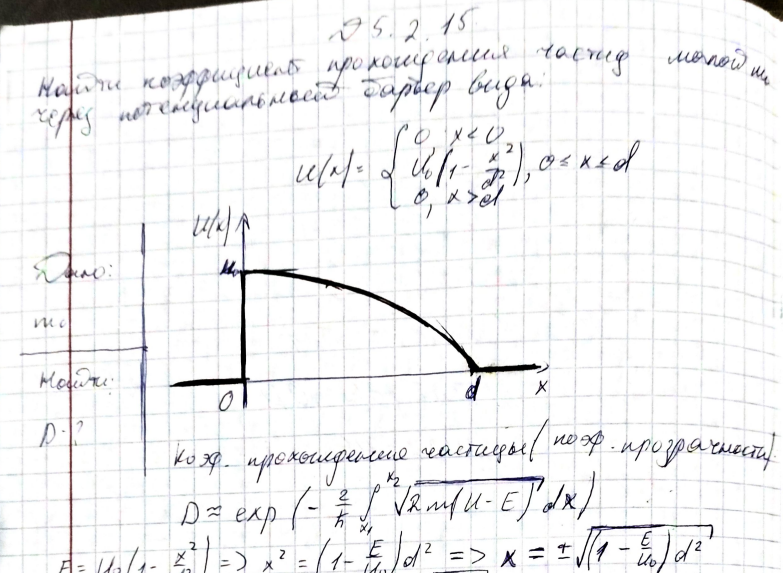 Д 5.2.15
Найти коэффициент прохождения частиц массой m₀
через потенциальный барьер вида:
0, x < 0
U(x) = { U₀(1 - x²/d²), 0 ≤ x ≤ d
0, x > d
U(x)
Дано:
U₀
m₀
Найти:
D-?
0
d
x
Коэф. прохождения частицы (коэф. прозрачности).
D ≈ exp(-2/ħ ∫ₓ₁ˣ² √2m(U - E) dx)
E = U₀(1 - x²/d²) => x² = (1 - E/U₀)d² => x = ±√(1 - E/U₀)d²